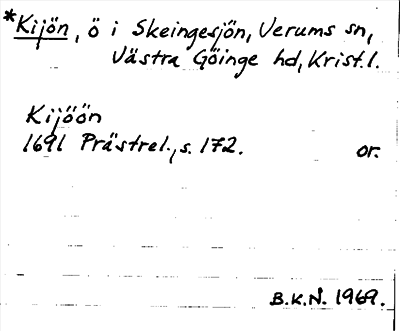 *Kijön, ö i Skeingesjön, Verums sn,
Västra Göinge hd, Krist.l.
Kijöön
1691 Prästrel., s. 172. or.
B.K.N. 1969.